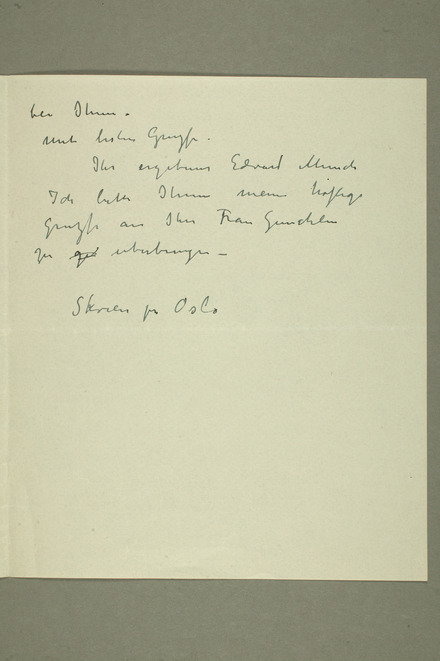 bei Ihnen.
mit besten Grüsse.
Ihr ergebener Edvard Munch
Ich bitte Ihnen meine höflige
Grüsse an Ihre Frau Gemahlin
zu überbringen –
Skøien pr Oslo